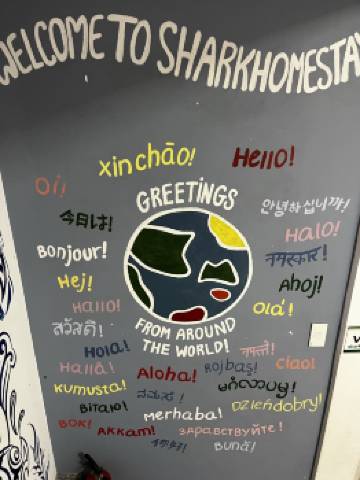 WELCOME TO SHARKHOMESTAY
xin chāo!
Hello!
Oi!
GREETINGS
안녕하십니까!
今日は!
Halo!
नमस्कार!
Bonjour!
Hej!
Ahoj!
Hallo!
Olá!
สวัสดี!
FROM AROUND
THE WORLD!
Hola!
नमस्ते!
Hallå!
Aloha!
Rojbaş!
Ciao!
kumusta!
မင်္ဂလာပမ္မ!
Bitaio!
merhaba!
Dzieńdobry!
BOK!
AKKAM!
ЗДРАВСТВУЙТЕ!
Bună!